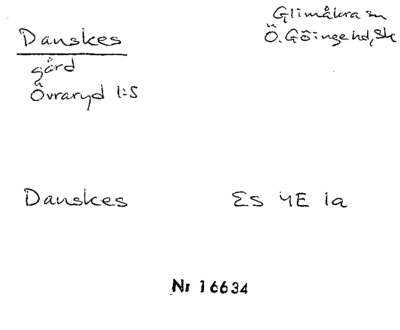 Danskes
gård
Övraryd 1:5
Glimåkra sn
Ö. Göinge hd, Sk
Danskes
Es 4E 1a
Nr 16634